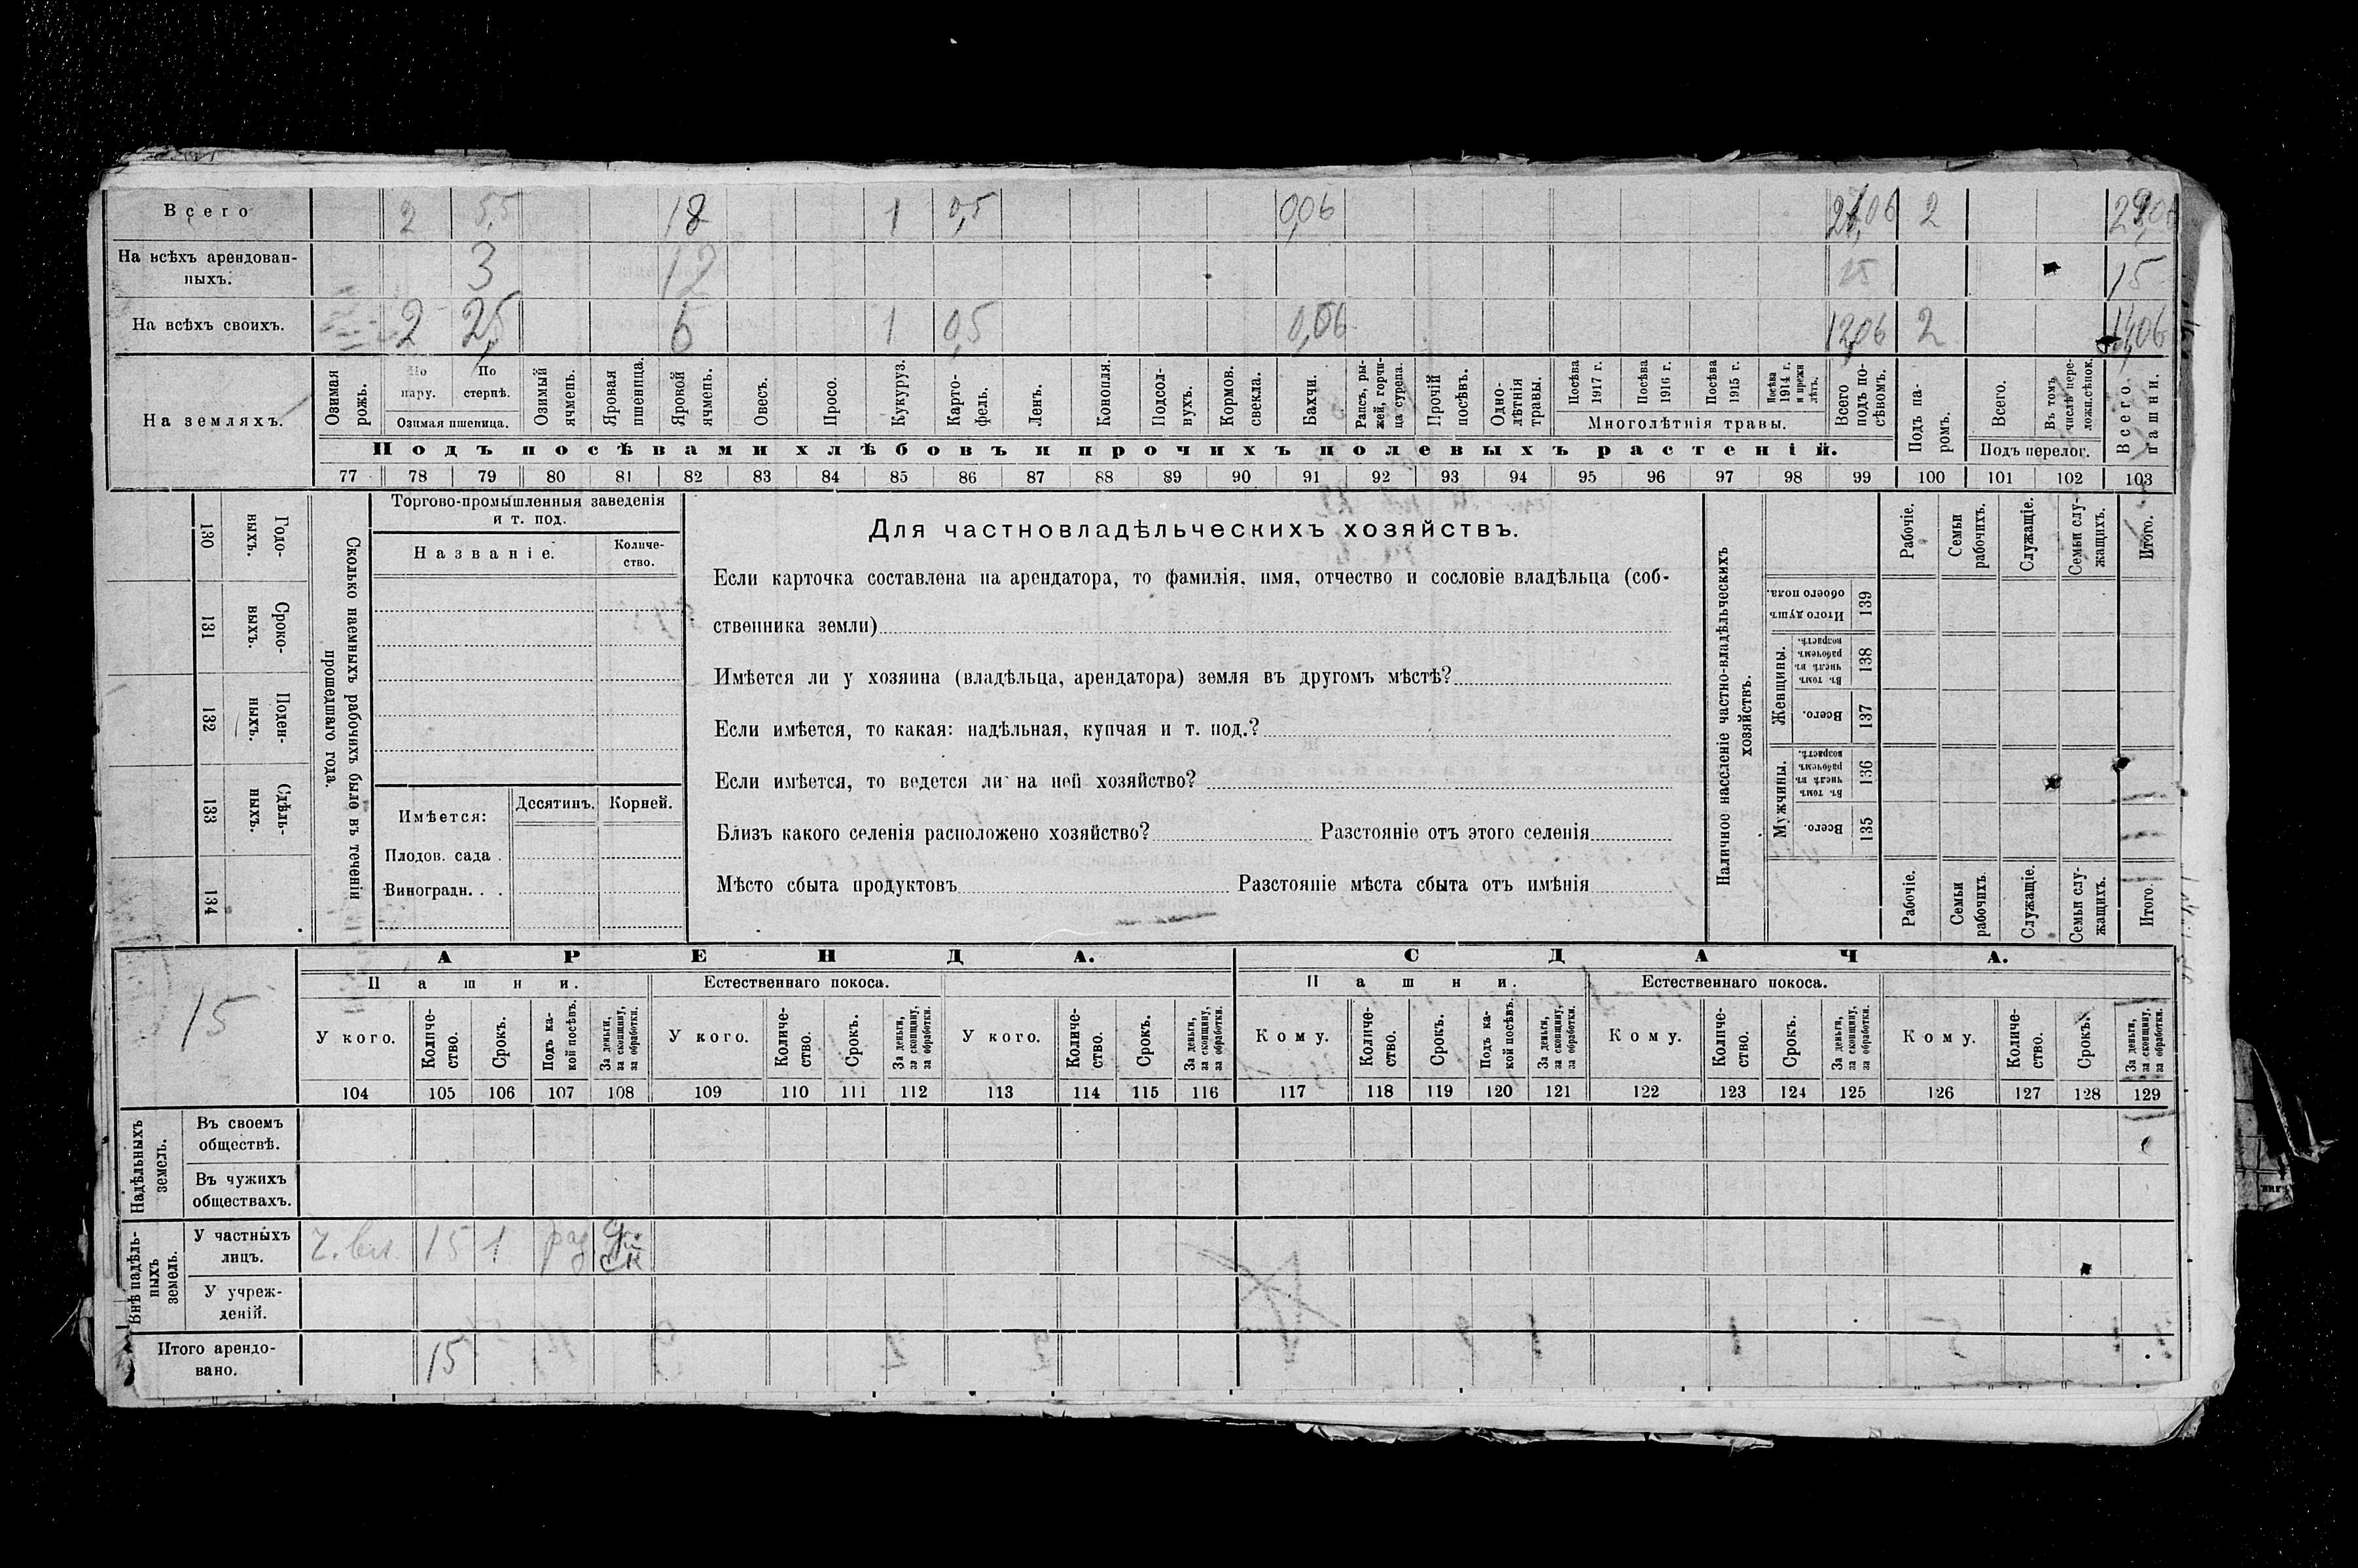 Всего 2 5,5 18 1 0,5 0,06 27,06 2 29,06
На всѣхъ арендован-
ныхъ. 3 12 15 15
На всѣхъ своихъ. 2 2,5 6 1 0,5 0,06 12,06 2 14,06
На земляхъ.
Озимая рожь.
По пару.
По стернѣ.
Озимая пшеница.
Озимый ячмень.
Яровая пшеница.
Яровой ячмень.
Овесъ.
Просо.
Кукуруз.
Карто-
фель.
Ленъ.
Конопля.
Подсол-
вухъ.
Кормов. свекла.
Бахчи.
Рапсъ, ры-
жей, горчи-
ца сурепа.
Прочій посѣвъ.
Одно-
лѣтнія травы.
Посѣва 1917 г.
Посѣва 1916 г.
Посѣва 1915 г.
Посѣва 1914 г. и прежн лѣтъ.
Многолѣтнія травы.
Всего подъ по-
сѣвомъ.
Подъ па-
ромъ.
Всего.
Въ томъ числѣ пере-
ложн.сѣнок.
Подъ перелог.
Всего. пашни.
Подъ посѣвами хлѣбовъ и прочихъ полевыхъ растеній.
77 78 79 80 81 82 83 84 85 86 87 88 89 90 91 92 93 94 95 96 97 98 99 100 101 102 103
Годо-
выхъ.
130
Сроко-
выхъ.
131
Поден-
ныхъ.
132
Сдѣль-
ныхъ.
133
134
Сколько наемныхъ рабочихъ было въ теченіи
прошедшаго года.
Торгово-промышленныя заведенія
и т. под.
Названіе.
Количе-
ство.
Имѣется:
Десятинъ.
Корней.
Плодов. сада .
Виноградн. . .
Для частновладѣльческихъ хозяйствъ.
Если карточка составлена на арендатора, то фамилія, имя, отчество и сословіе владѣльца (соб-
ственника земли)
Имѣется ли у хозяина (владѣльца, арендатора) земля въ другомъ мѣстѣ?
Если имѣется, то какая: надѣльная, купчая и т. под.?
Если имѣется, то ведется ли на ней хозяйство?
Близъ какого селенія расположено хозяйство? Разстояніе отъ этого селенія
Мѣсто сбыта продуктовъ Разстояніе мѣста сбыта отъ имѣнія
Наличное населеніе частно-владѣльческихъ
хозяйствъ.
Рабочіе.
Семьи рабочихъ.
Служащіе.
Семьи слу-
жащихъ.
Итого.
Итого душъ обоего пола.
139
Женщины.
Въ томъ числѣ въ рабочемъ возрастѣ.
138
Всего.
137
Мужчины.
Въ томъ числѣ въ рабочемъ возрастѣ.
136
Всего.
135
Рабочіе.
Семьи рабочихъ.
Служащіе.
Семьи слу-
жащихъ.
Итого.
15
АРЕНДА.
СДАЧА.
Пашни.
Естественнаго покоса.
Пашни.
Естественнаго покоса.
У кого.
Количе-
ство.
Срокъ.
Подъ ка-
кой посѣвъ.
За деньги, за скопщину, за обработки.
У кого.
Количе-
ство.
Срокъ.
За деньги, за скопщину, за обработки.
У кого.
Количе-
ство.
Срокъ.
За деньги, за скопщину, за обработки.
Кому.
Количе-
ство.
Срокъ.
Подъ ка-
кой посѣвъ.
За деньги, за скопщину, за обработки.
Кому.
Количе-
ство.
Срокъ.
За деньги, за скопщину, за обработки.
Кому.
Количе-
ство.
Срокъ.
За деньги, за скопщину, за обработки.
104 105 106 107 108 109 110 111 112 113 114 115 116 117 118 119 120 121 122 123 124 125 126 127 128 129
Надѣльныхъ земель.
Въ своемъ
обществѣ.
Въ чужихъ
обществахъ.
Внѣ надѣль-
ныхъ земель.
У частныхъ
лицъ. 15 1
У учреж-
деній.
Итого арендо-
вано. 15